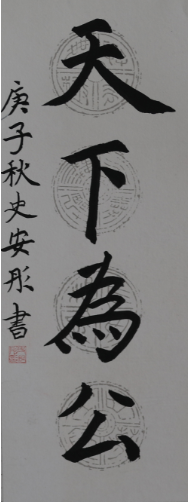 天下為公
庚子秋史安彤書